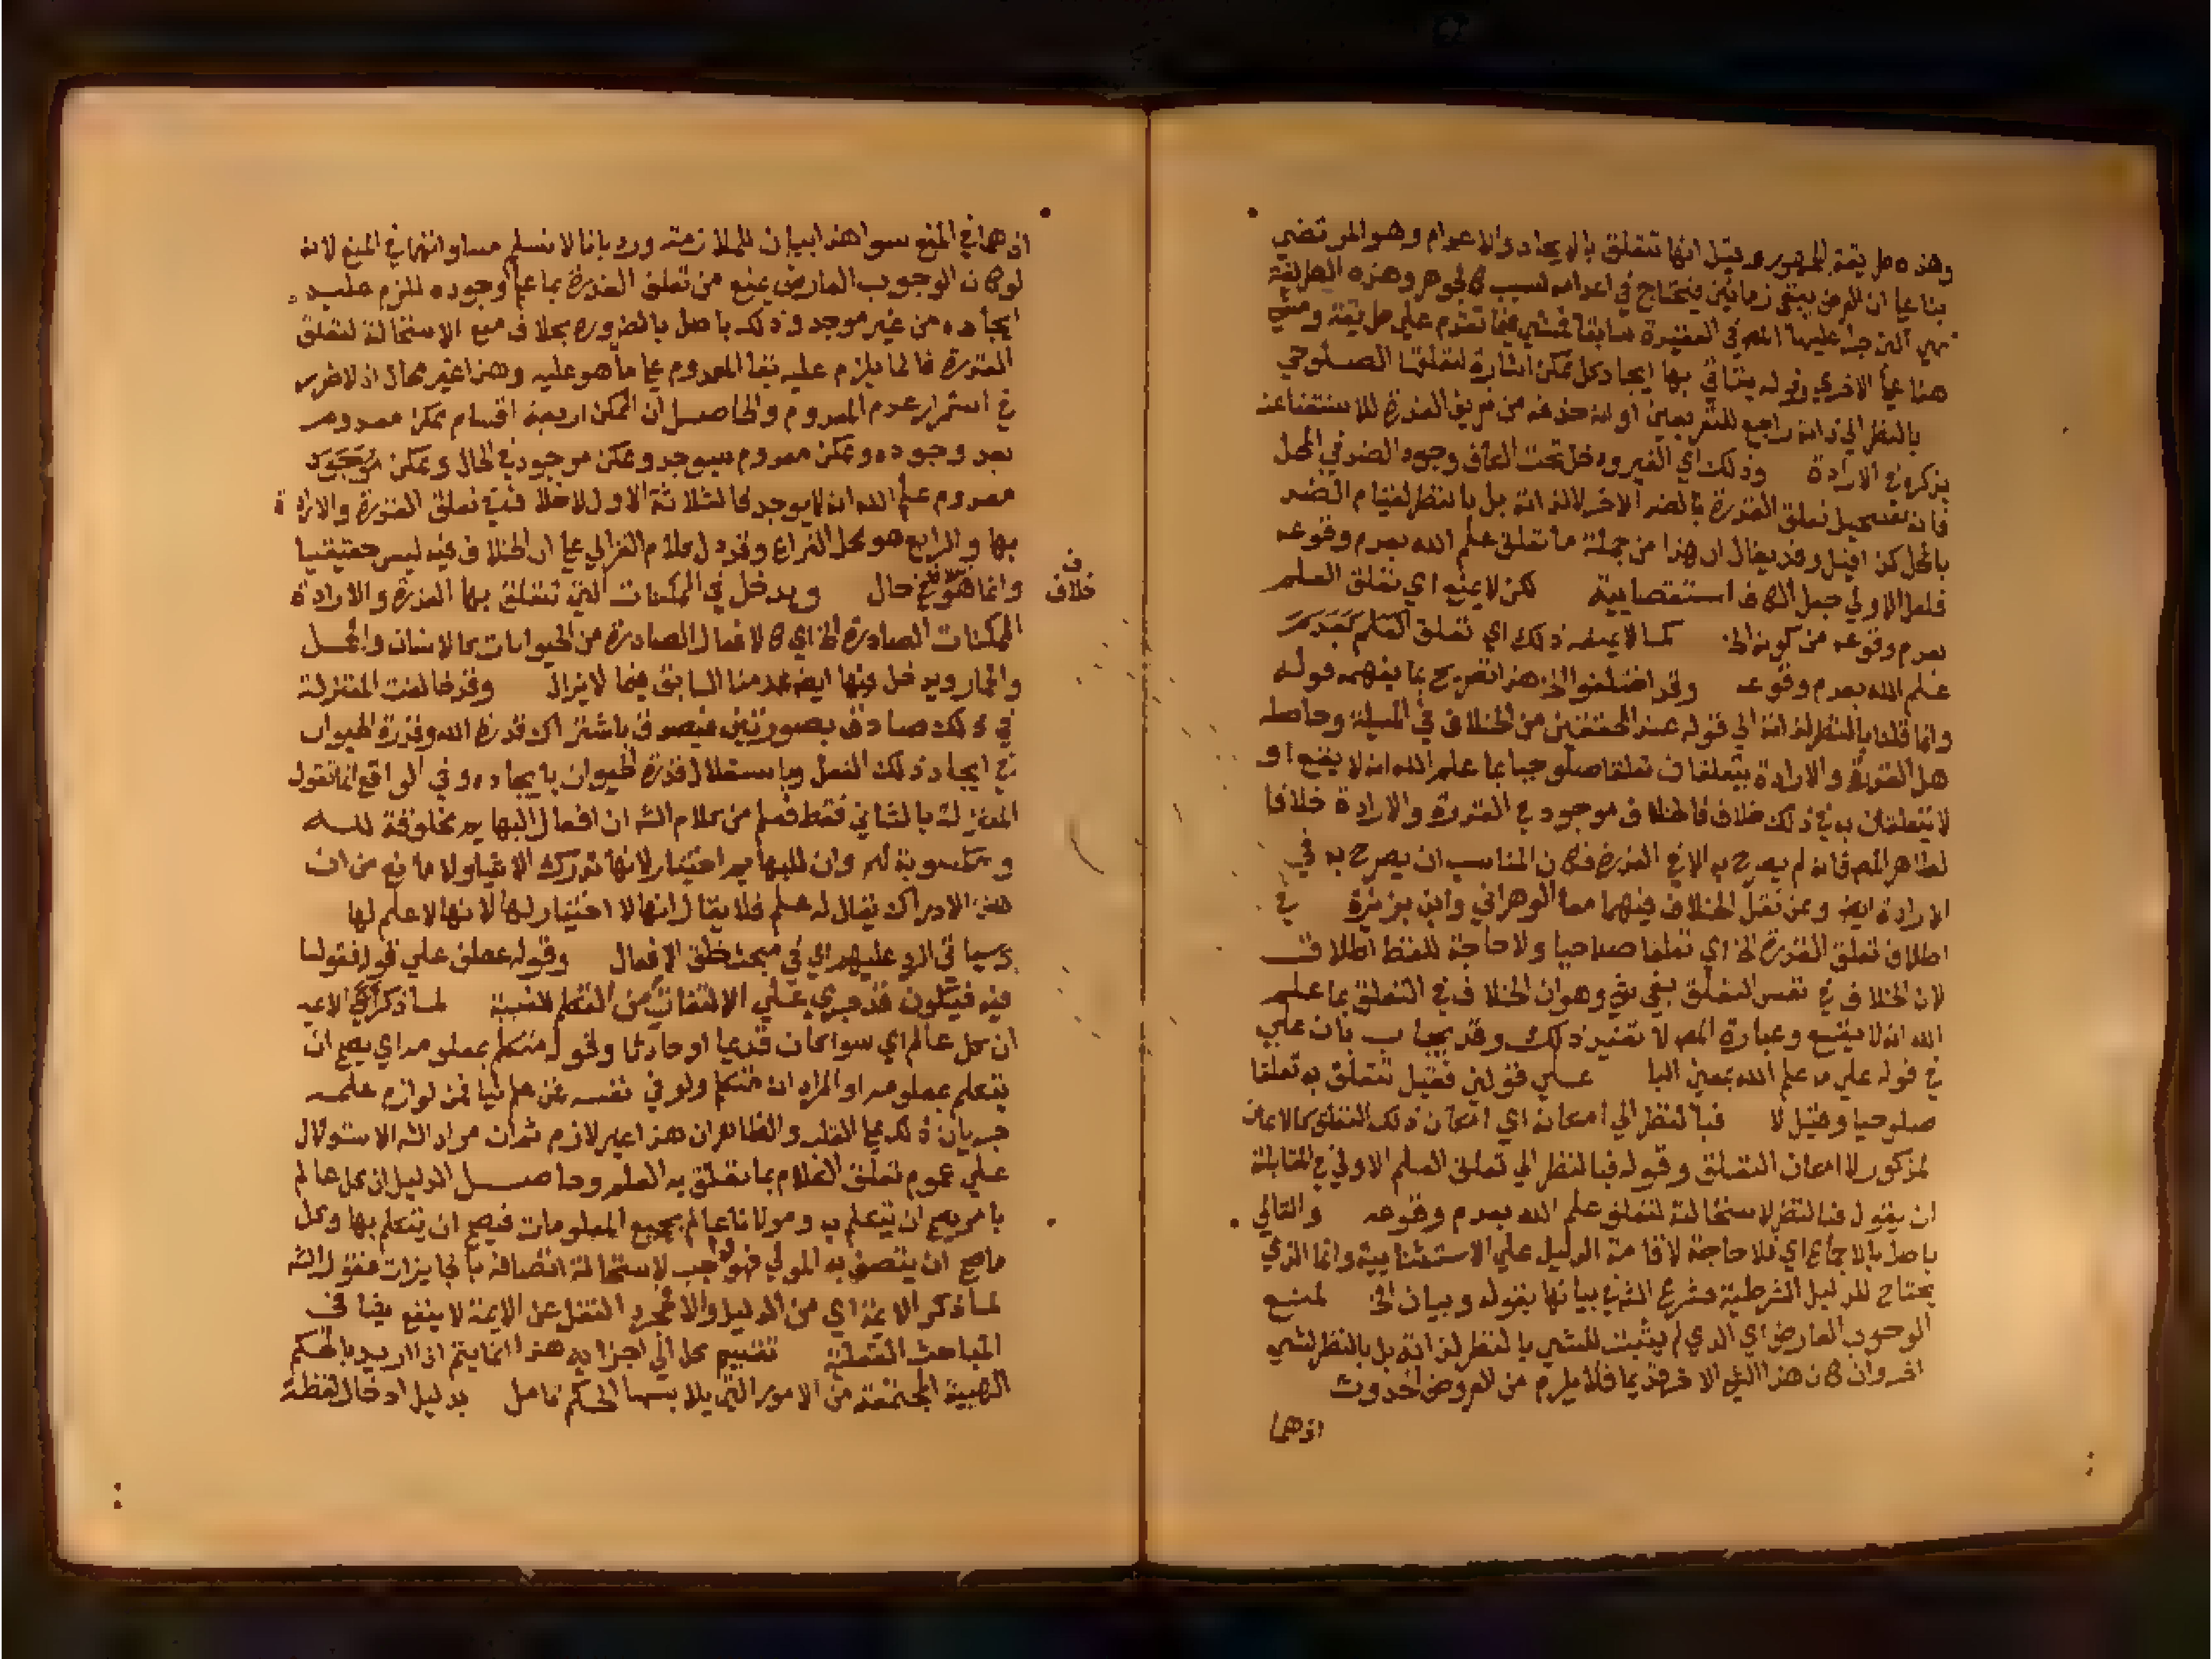 وهذه طريقة الجمهور وقيل انها تتعلق بالايجاد والاعدام وهو المرتضي
بنا علي ان العرض يبقي زمانين فيحتاج في اعدامه لسبب كالجوهر وهذه الطريقة
هي التي عليها المص في العقيدة سابقا فمشي فيما تقدم علي طريقة ومشي
هنا علي الاخري وقوله يتاتي بها ايجاد كل ممكن اشارة لتعلقها الصلوحي
بالنظر الي ذاته راجع للتعريفين او انه حذفه من تعريف القدرة للاستغنا عنه
بذكره في الارادة وذلك اي الغير ودخل تحت الكاف وجود الضد في المحل
فانه يستحيل تعلق القدرة بالضد الاخر لا لذاته بل بالنظر لقيام الضد
بالمحل كذا قيل وقد يقال ان هذا من جملة ما تعلق علم الله بعدم وقوعه
فلعل الاولي جعل الكاف استقصايية لكن لا يمنع اي تعلق العلم
بعدم وقوعه من كونه الخ كما لا يمنعه ذلك اي تعلق العلم بعدم
علم الله بعدم وقوعه وقد اختلفوا الخ هذا تصريح بما يفهمه قوله
وانما قلنا بالنظر لذاته الي قوله عند المحققين من الخلاف في المسيلة وحاصله
هل القدرة والارادة يتعلقان تعلقا صلوحيا بما علم الله انه لا يقع او
لا يتعلقان به في ذلك خلاف فالخلاف موجود في القدرة والارادة خلافا
لظاهر المص فانه لم يصرح به الا في القدرة فكان المناسب ان يصرح به في
الارادة ايض وممن نقل الخلاف فيهما معا الوهراني وابن بزيزة في
اطلاق تعلق القدرة الخ اي تعلقا صلاحيا ولا حاجة للفظ اطلاق
لان الخلاف في نفس التعلق بقي شي وهو ان الخلاف في التعلق بما علم
الله انه لا يقع وعبارة المص لا تفيد ذلك وقد يجاب بان علي
في قوله علي ما علم الله بمعني البا علي قولين فقيل تتعلق به تعلقا
صلوحيا وقيل لا فبالنظر الي امكانه اي امكان ذلك التعلق كالايمان
المذكور لا امكان التعلق وقوله فبالنظر الي تعلق العلم الاولي في المقابلة
ان يقول فبالنظر لاستحالته لتعلق علم الله بعدم وقوعه والتالي
باطل بالاجماع اي فلا حاجة لاقامة الدليل علي الاستثنايية وانما الذي
يحتاج للدليل الشرطية فشرع الش في بيانها بقوله وبيان الخ لمنع
الوجوب العارض اي الذي لم يثبت للشي بالنظر لذاته بل بالنظر لشي
اخر وان كان هذا الشي الاخر قديما فلا يلزم من العروض الحدوث
اذهما
اذ هما في المنع سوا هذا بيان للملازمة ورد بانا لا نسلم مساواتهما في المنع لانه
لو كان الوجوب العارض يمنع من تعلق القدرة بما علم وجوده للزم عليه
ايجاده من غير موجد وذلك باطل بالضرورة بخلاف منع الاستحالة لتعلق
القدرة فانما يلزم عليه بقا المعدوم علي ما هو عليه وهذا غير محال اذ لا ضرر
في استمرار عدم المعدوم والحاصل ان الممكن اربعة اقسام ممكن معدوم
بعد وجوده وممكن معدوم سيوجد وممكن موجود في الحال وممكن
معدوم علم الله انه لا يوجد فالثلاثة الاول لا خلاف في تعلق القدرة والارادة
بها والرابع هو محل النزاع وقد دل كلام الغزالي علي ان الخلاف فيه ليس حقيقيا
وانما هو في حال ويدخل في الممكنات التي تتعلق بها القدرة والارادة
ف
خلاف
الممكنات الصادرة الخ اي كالافعال الصادرة من الحيوانات كالانسان والجمل
والحمار ويدخل فيها ايض عدمنا السابق فيما لا يزال وقد خالفت المعتزلة
في ذلك صادق بصورتين فيصدق باشتراك قدرة الله وقدرة الحيوان
في ايجاد ذلك الفعل وباستقلال قدرة الحيوان بايجاده وفي الواقع انما تقول
المعتزلة بالثاني فقط فعلم من كلام الش ان افعال البهايم مخلوقة لله
ومكسوبة لهم وان للبهايم اختيارا لانها تدرك الاشيا ولا مانع من ان
هذا الادراك يقال له علم فلا يقال انها لا اختيار لها لانها لا علم لها
وسياتي الرد عليهم اي في مبحث خلق الافعال وقوله عطف علي قوله فقولنا
فيه فيكون قد جري علي الالتفات من التكلم للغيبة لما ذكر الايمة
ان كل عالم اي سوا كان قديما او حادثا وقوله متكلم بمعلومه اي يصح ان
يتكلم بمعلومه او المراد ان متكلم ولو في نفسه فمن علم شيا فمن لوازم علمه
جريان ذلك علي القلب والظاهر ان هذا غير لازم ثم ان مراد الش الاستدلال
علي عموم تعلق الكلام بما تعلق به العلم وحاصل الدليل ان كل عالم
بامر يصح ان يتكلم به ومولانا عالم بجميع المعلومات فيصح ان يتكلم بها وكل
ما صح ان يتصف به المولي فهو واجب لاستحالة اتصافه بالجايزات فقول الش
لما ذكر الايمة اي من الدليل والا فمجرد النقل عن الايمة لا ينفع في
المباحث العقلية تقسيم كل الي اجزايه هذا انما يتم ان اريد بالحكم
الهيية المجتمعة من الامور التي يلابسها الحكم تامل بدليل ادخال لفظة